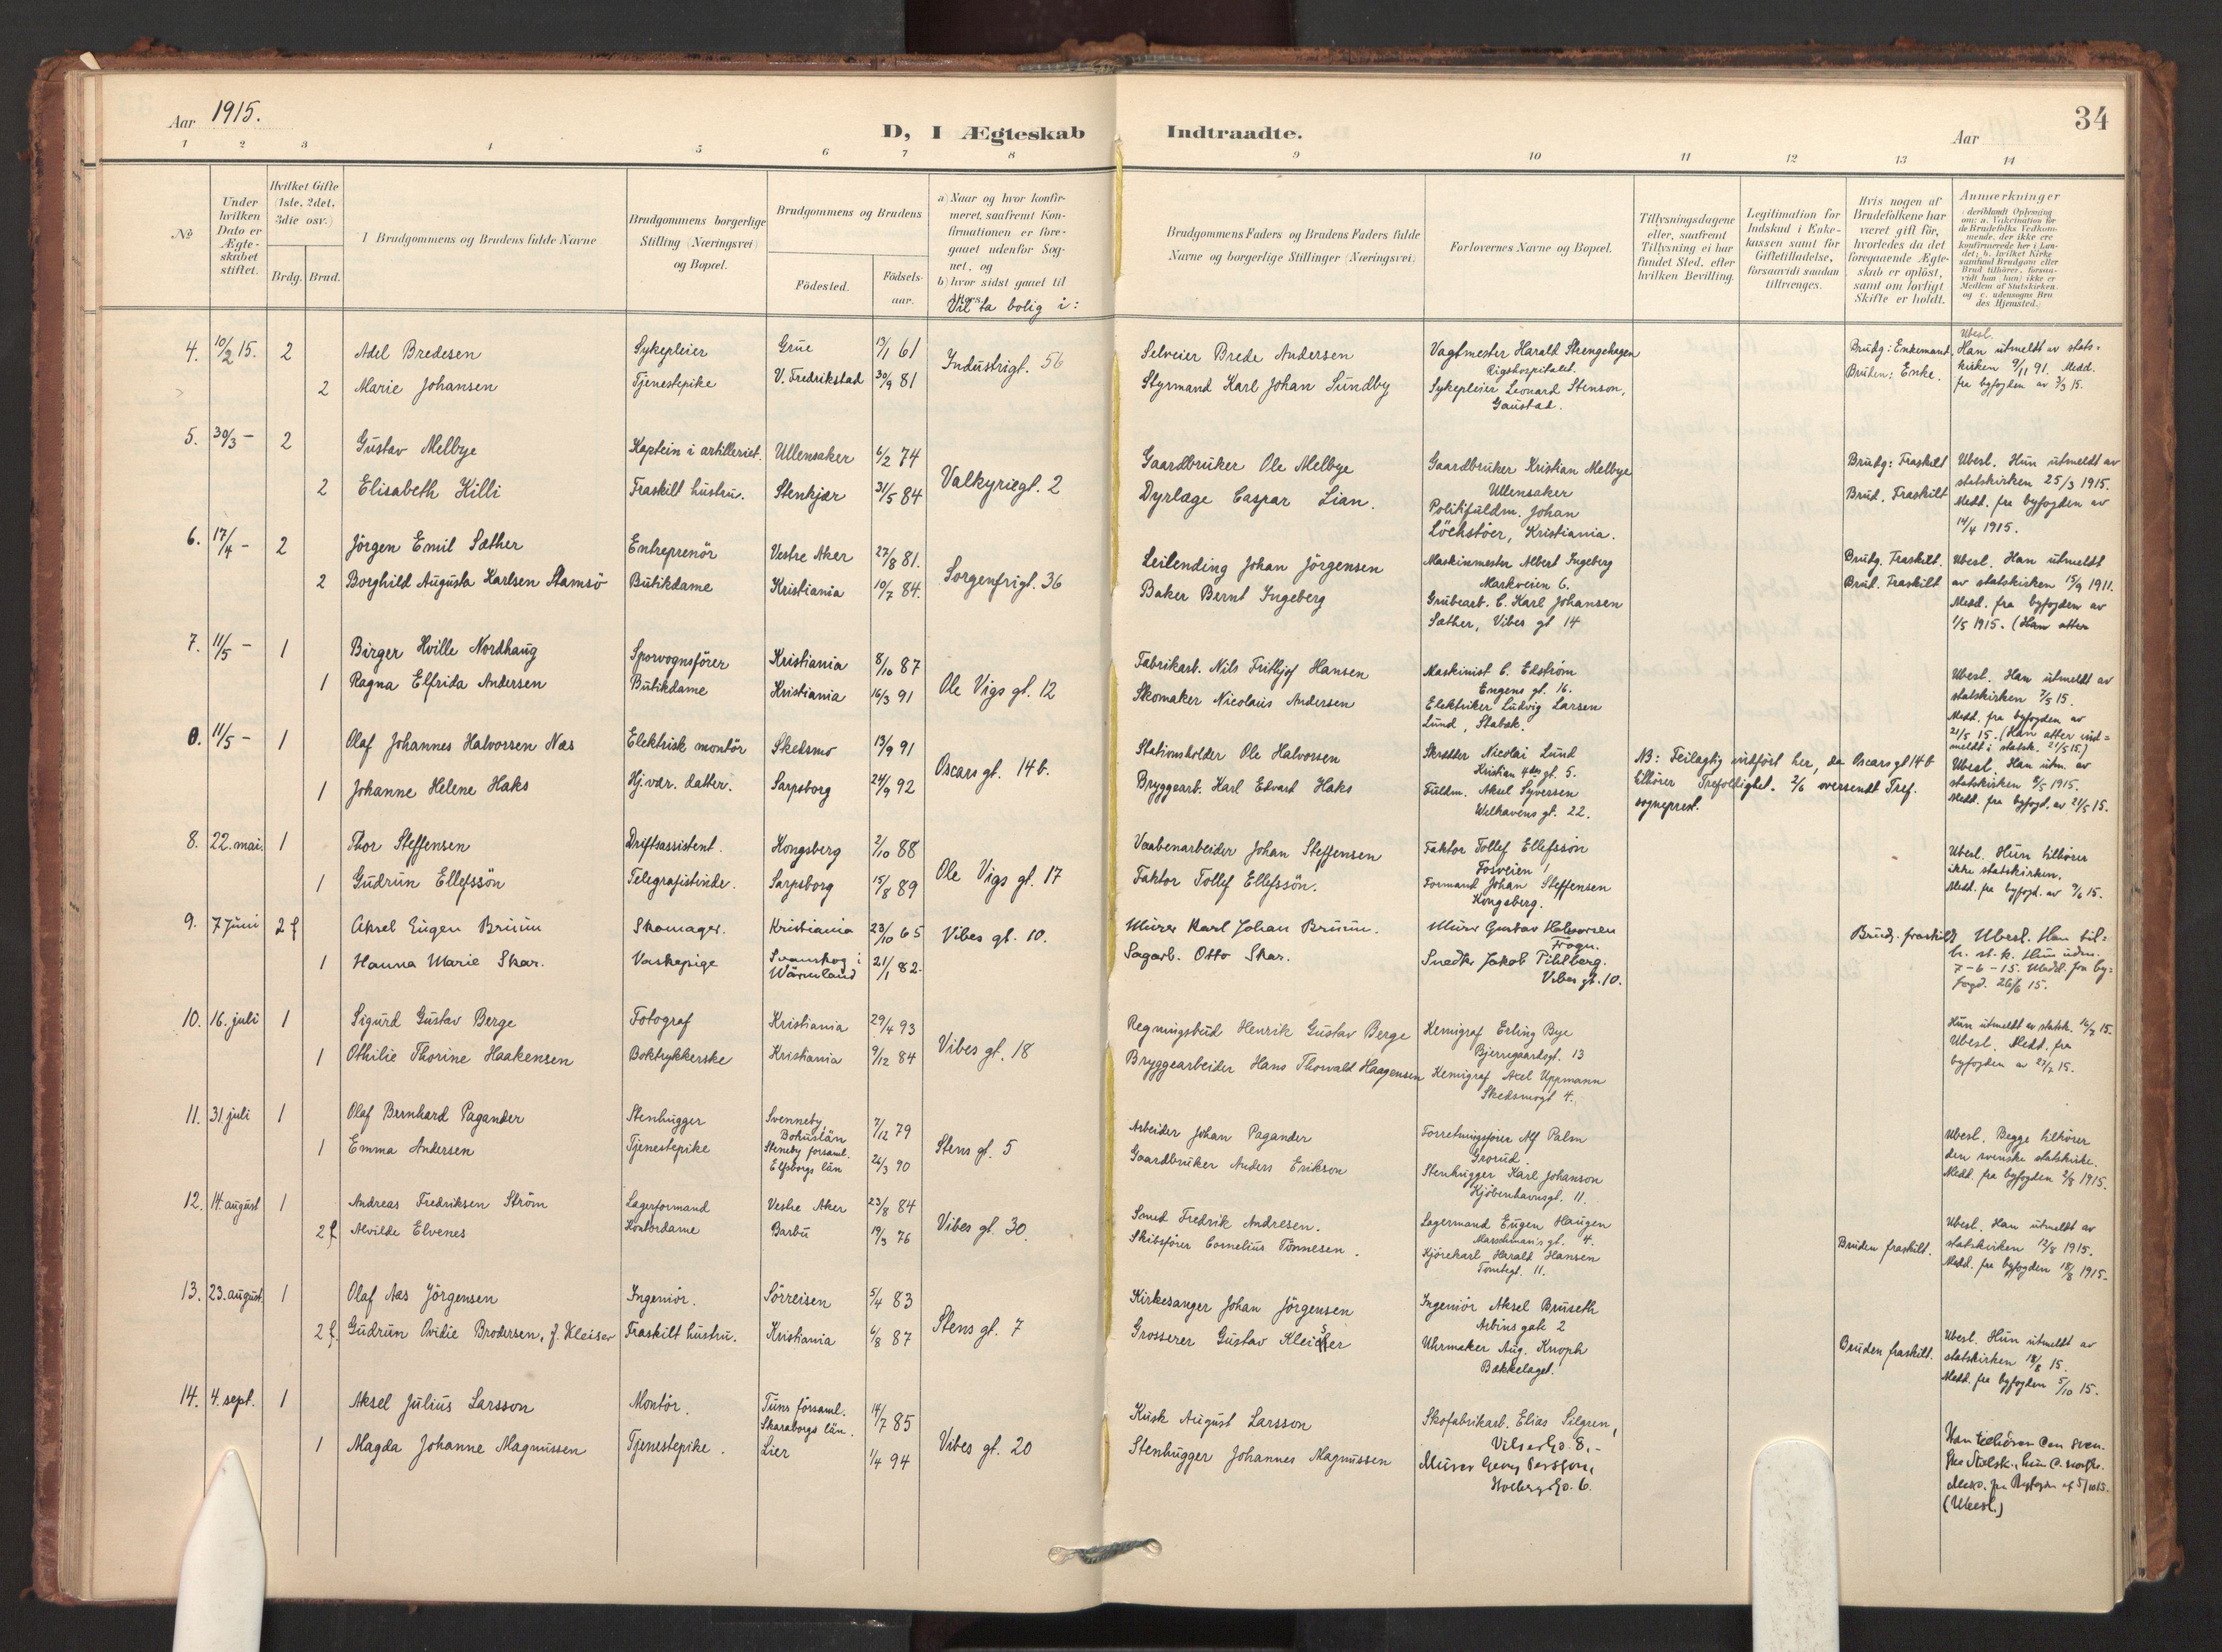 Aar 1915.
D, I Ægteskab Indtraadte.
Aar
34
1 2 3 4 5 6 7 8 9 10 11 12 13 14
No
Under hvilken Dato er Ægteskabet stiftet.
Hvilket Gifte (1ste, 2det, 3die osv.)
Brdg. Brud.
1 Brudgommens og Brudens fulde Navne
Brudgommens borgerlige Stilling (Næringsvei) og Bopæl.
Brudgommens og Brudens
Födested.
Födselsaar.
a) Naar og hvor konfirmeret, saafremt Konfirmationen er foregaaet udenfor Sognet, og
b) hvor sidst gaaet til Alters.
Vil ta bolig i:
Brudgommens Faders og Brudens Faders fulde Navne og borgerlige Stillinger (Næringsvei)
Forlovernes Navne og Bopæl.
Tillysningsdagene eller, saafremt Tillysning ei har fundet Sted, efter hvilken Bevilling.
Legitimation for Indskud i Enkekassen samt for Giftetilladelse, forsaavidt saadan tiltrænges.
Hvis nogen af Brudefolkene har været gift för, hvorledes da det foregaaende Ægteskab er oplöst, samt om lovligt Skifte er holdt.
Anmærkninger
(deriblandt Oplysning om: a. Vakcination for de Brudefolks Vedkommende, der ikke ere konfirmerede her i Landet; b. hvilket Kirkesamfund Brudgom eller Brud tilhörer, forsaavidt han (hun) ikke er Medlem af Statskirken, og c. udensogns Brudes Hjemsted.)
4. 10/2 15. 2 Adel Bredesen Sykepleier Grue 13/1 61 Industrigt. 56 Selveier Brede Andersen Vagtmester Harald Strengehagen Rigshospitalet. Brudg: Enkemand
2 Marie Johansen Tjenestepike V. Fredrikstad 30/9 81 Styrmand Karl Johan Sundby Sykepleier Leonard Stenson, Gaustad. Bruden: Enke.
Ubesl. Han utmeldt av statskirken 9/11 91. Medd. fra byfogden av 3/3 15.
5. 30/3 - 2 Gustav Melbye Kaptein i artilleriet. Ullensaker 6/2 74 Valkyriegt. 2 Gaardbruker Ole Melbye Gaardbruker Kristian Melbye Ullensaker Brudg: Fraskilt
2 Elisabeth Killi Fraskilt hustru. Stenkjær 31/5 84 Dyrlæge Caspar Lian. Politifuldm. Johan Löchstöer, Kristiania. Brud. Fraskilt
Ubesl. Hun utmeldt av statskirken 25/3 1915. Medd. fra byfogden av 14/4 1915.
6. 17/4 - 2 Jörgen Emil Sæther Entreprenör Vestre Aker 27/8 81. Sorgenfrigt. 36 Leilending Johan Jörgensen Maskinmester Albert Ingeberg Markveien 6. Brudg. Fraskilt.
2 Borghild Augusta Karlsen Stamsö Butikdame Kristiania 10/7 84. Baker Bernt Ingeberg Grubearb. C. Karl Johansen Sæther, Vibes gt 14 Brud. Fraskilt
Ubesl. Han utmeldt av statskirken 15/9 1911. Medd. fra byfogden av 1/5 1915. (Han atter
7. 11/5 - 1 Birger Hville Nordhaug Sporvognsförer Kristiania 8/10 87 Ole Vigs gt. 12 Fabrikarb. Nils Frithjof Hansen Maskinist C. Edström Engens gt. 16.
1 Ragna Elfrida Andersen Butikdame Kristiania 16/3 91 Skomaker Nicolaus Andersen Elektriker Ludvig Larsen Lund, Stabæk.
Ubesl. Han utmeldt av statskirken 7/5 15. Medd. fra byfogden av 21/5 15. (Han atter indmeldt i statsk. 21/5 15)
0. 11/5 - 1 Olaf Johannes Halvorsen Næs Elektrisk montör Skedsmo 13/9 91 Oscars gt. 14 b. Stationsholder Ole Halvorsen Skrædder Nicolai Lund Kristian 4des gt. 5.
1 Johanne Helene Haks Hj.vær. datter. Sarpsborg 24/9 92 Bryggearb. Karl Edvard Haks Fuldm. Aksel Syversen Welhavens gt. 22.
NB: Feilagtig indfört her, da Oscars gt 14 b tilhörer Trefoldighet. 2/6 oversendt Tref. sogneprest.
Ubesl. Han utm. av statskirken 8/5 1915. Medd. fra byfogd. av 21/5 15.
8. 22. mai. 1 Thor Steffensen Driftsassistent. Kongsberg 2/10 88 Ole Vigs gt. 17 Vaabenarbeider Johan Steffensen Faktor Tollef Ellefssön Fosveien 1
1 Gudrun Ellefssön Telegrafistinde. Sarpsborg 15/8 89 Faktor Tollef Ellefssön. Formand Johan Steffensen Kongsberg.
Ubesl. Hun tilhörer ikke statskirken. Medd. fra byfogd. av 9/6 15.
9. 7 juni 2 f Aksel Eugen Bruun Skomager. Kristiania 23/10 65 Vibes gt. 10. Murer Karl Johan Bruun. Murer Gustav Halvorsen Frogn. Brudg. fraskilt
1 Hanna Marie Skar. Vaskepige Svanskog i Wärmland 21/1 82 Sagarb. Otto Skar. Snedker Jakob Pihlberg. Vibes gt. 10.
Ubesl. Han tilh. st. k. Hun udm. 7-6-15. Medd. fra byfogd. 26/6 15.
10. 16. juli 1 Sigurd Gustav Berge Fotograf Kristiania 29/4 93 Vibes gt. 18 Regningsbud Henrik Gustav Berge Kemigraf Erling Bye Bjerregaardsgt. 13
1 Othilie Thorine Haakensen Boktrykkerske Kristiania 9/12 84 Bryggearbeider Hans Thorvald Haagensen Kemigraf Axel Uppmann Skedsmogt 4.
Hun utmeldt av statsk. 14/7 15. Ubesl. Medd. fra byfogden av 22/7 15.
11. 31 juli 1 Olaf Bernhard Pagander Stenhugger Svenneby Bohuslän 7/12 79 Stens gt. 5 Arbeider Johan Pagander Forretningsfører Alf Palm Grorud.
1 Emma Andersen Tjenestepike Steneby forsaml. Elfsborgs län 26/3 90 Gaardbruker Anders Erikson Stenhugger Karl Johanson Kjöbenhavnsgt. 11.
Ubesl. Begge tilhörer den svenske statskirke. Medd. fra byfogden 2/8 1915.
12. 14. august 1 Andreas Fredriksen Ström Lagerformand Vestre Aker 23/8 84 Vibes gt. 30. Smed Fredrik Andresen. Lagermand Eugen Haugen Marschman's gt. 4.
2 f Alvilde Elvenes Kontordame Barbu 19/3 76 Skibsförer Cornelius Tönnesen. Kjörekarl Harald Hansen Tomtegt. 11. Bruden fraskilt.
Ubesl. Han utmeldt av statskirken 12/8 1915. Medd. fra byfogden 18/8 1915.
13. 23. august. 1 Olaf Aas Jörgensen Ingeniör. Sörreisen 5/4 83 Stens gt. 7 Kirkesanger Johan Jörgensen Ingeniör Aksel Bruseth Arbins gate 2
2 f. Gudrun Ovidie Brodersen, f. Kleiser Fraskilt hustru. Kristiania 6/8 87 Grosserer Gustav Kleiser Uhrmaker Aug. Knoph Bækkelaget. Bruden fraskilt.
Ubesl. Hun utmeldt av statskirken 18/8 15. Medd. fra byfogden 5/10 15.
14. 4. sept. 1 Aksel Julius Larsson Montör. Tuns församl. Skaraborgs län. 14/7 85 Vibes gt. 20 Kusk August Larsson Skofabrikarb. Elias Silgren,
1 Magda Johanne Magnussen Tjenestepike. Lier 1/4 94 Stenhugger Johannes Magnussen Murer Georg Persson,
Han tilhörer den svenske Statsk., hun d. norske. Medd. fra Byfogden af 5/10 15. (Ubesl.)